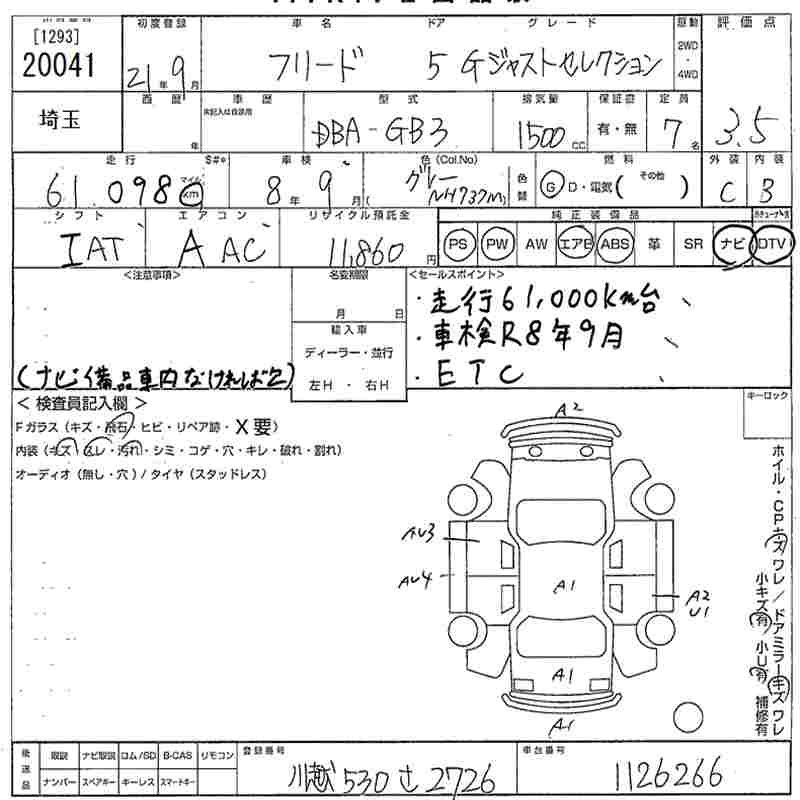 [1293]
20041
初度登録
車名
ドア
グレード
駆動
評価点
21年9月
フリード
5
Gジャストセレクション
2WD
・
4WD
埼玉
西暦
車歴
未記入は自家用
型式
排気量
保証書
定員
年
DBA-GB3
1500cc
有・無
7名
3.5
走行
S#*
車検
色(Col.No)
燃料
外装
内装
61,098
マイル
km
8年9月(
グレー
NH737M)
色替
G D・電気(
その他
)
C
B
シフト
エアコン
リサイクル預託金
純正装備品
IAT
AAC
11,860円
PS
PW
AW
エアB
ABS
革
SR
ナビ
DTV
<注意事項>
名変期限
<セールスポイント>
月 日
・走行61,000km台
輸入車
・車検R8年9月
ディーラー・並行
・ETC
(ナビ備品車内なければ乞)
左H・右H
<検査員記入欄>
キーロック
Fガラス(キズ・飛石・ヒビ・リペア跡・X要)
内装(キズ・スレ・汚れ・シミ・コゲ・穴・キレ・破れ・割れ)
オーディオ(無し・穴)/タイヤ(スタッドレス)
A2
AU3
AU4
A1
A2
U1
A1
A1
ホイル・CPキズワレ/ドアミラーキズワレ
小キズ有/小U有 補修有
後送品
取説
ナビ取説
ロム/SD
B-CAS
リモコン
ナンバー
スペアキー
キーレス
スマートキー
登録番号
川越530さ2726
車台番号
1126266